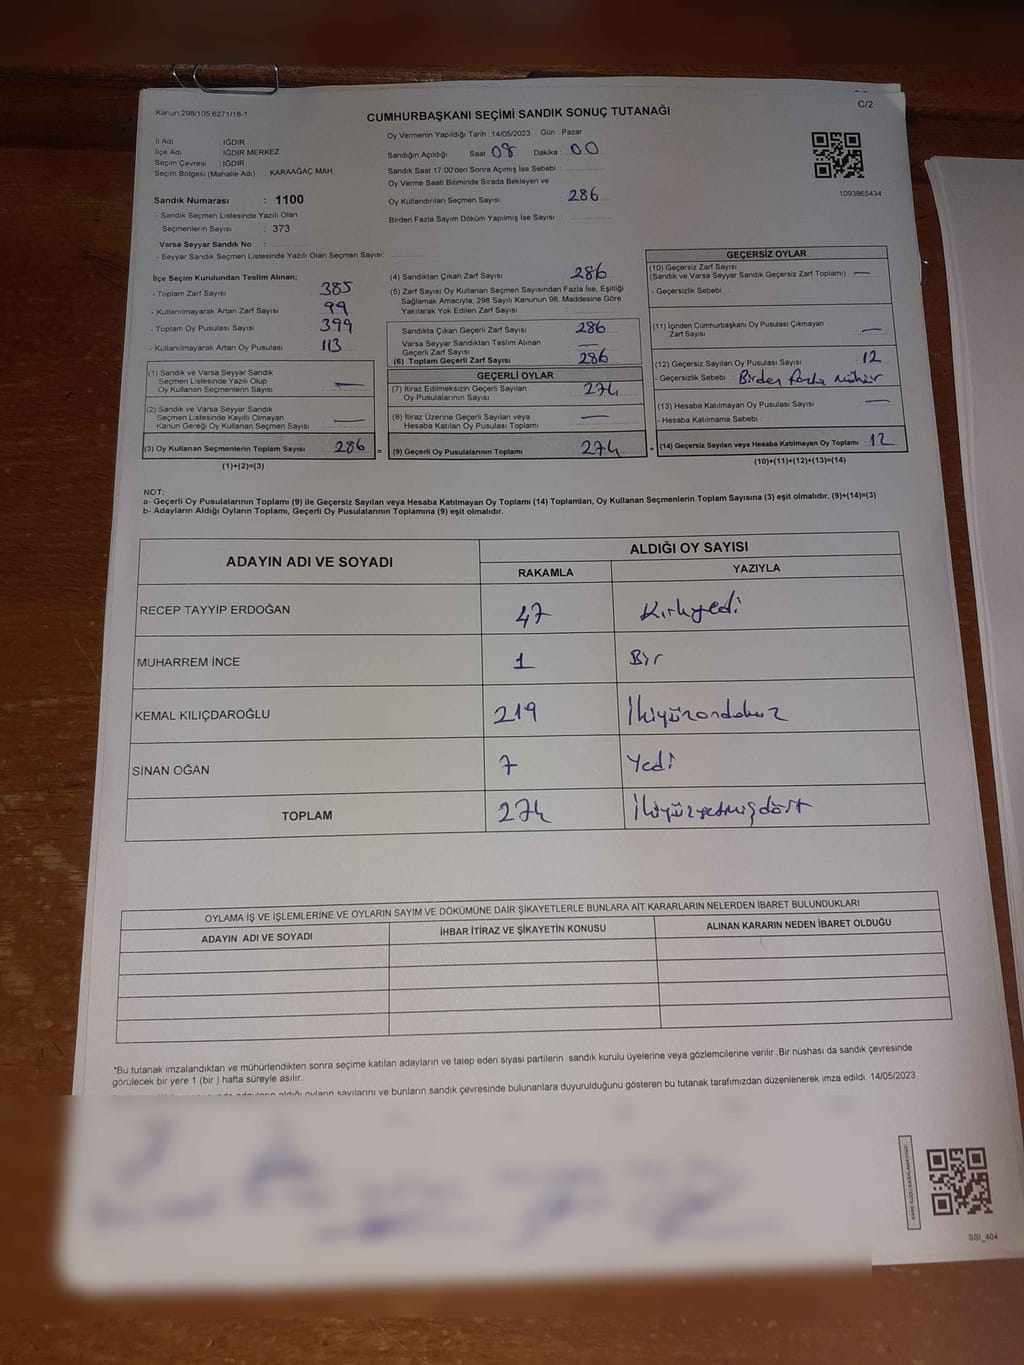 Kanun:298/105:6271/18-1
C/2
CUMHURBAŞKANI SEÇİMİ SANDIK SONUÇ TUTANAĞI
İl Adı : IĞDIR
İlçe Adı : IĞDIR MERKEZ
Seçim Çevresi : IĞDIR
Seçim Bölgesi (Mahalle Adı) : KARAAĞAÇ MAH.
Sandık Numarası : 1100
- Sandık Seçmen Listesinde Yazılı Olan
Seçmenlerin Sayısı : 373
Varsa Seyyar Sandık No :
- Seyyar Sandık Seçmen Listesinde Yazılı Olan Seçmen Sayısı:
Oy Vermenin Yapıldığı Tarih :14/05/2023 Gün : Pazar
Sandığın Açıldığı Saat 08 Dakika : 00
Sandık Saat 17:00'den Sonra Açımış İse Sebebi :
Oy Verme Saati Bitiminde Sırada Bekleyen ve
Oy Kullandırılan Seçmen Sayısı 286
Birden Fazla Sayım Döküm Yapılmış İse Sayısı :
1093865434
İlçe Seçim Kurulundan Teslim Alınan;
- Toplam Zarf Sayısı 385
- Kullanılmayarak Artan Zarf Sayısı 99
- Toplam Oy Pusulası Sayısı 399
- Kullanılmayarak Artan Oy Pusulası 113
(1) Sandık ve Varsa Seyyar Sandık
Seçmen Listesinde Yazılı Olup
Oy Kullanan Seçmenlerin Sayısı —
(2) Sandık ve Varsa Seyyar Sandık
Seçmen Listesinde Kayıtlı Olmayan
Kanun Gereği Oy Kullanan Seçmen Sayısı —
(3) Oy Kullanan Seçmenlerin Toplam Sayısı 286 =
(1)+(2)=(3)
(4) Sandıktan Çıkan Zarf Sayısı 286
(5) Zarf Sayısı Oy Kullanan Seçmen Sayısından Fazla İse, Eşitliği
Sağlamak Amacıyla; 298 Sayılı Kanunun 98. Maddesine Göre
Yakılarak Yok Edilen Zarf Sayısı
Sandıkta Çıkan Geçerli Zarf Sayısı 286
Varsa Seyyar Sandıktan Teslim Alınan
Geçerli Zarf Sayısı —
(6) Toplam Geçerli Zarf Sayısı 286
GEÇERLİ OYLAR
(7) İtiraz Edilmeksizin Geçerli Sayılan
Oy Pusulalarının Sayısı 274
(8) İtiraz Üzerine Geçerli Sayılan veya
Hesaba Katılan Oy Pusulası Toplamı —
(9) Geçerli Oy Pusulalarının Toplamı 274 +
GEÇERSİZ OYLAR
(10) Geçersiz Zarf Sayısı
(Sandık ve Varsa Seyyar Sandık Geçersiz Zarf Toplamı) : —
- Geçersizlik Sebebi :
(11) İçinden Cumhurbaşkanı Oy Pusulası Çıkmayan
Zarf Sayısı —
(12) Geçersiz Sayılan Oy Pusulası Sayısı 12
- Geçersizlik Sebebi : Birden fazla mühür
(13) Hesaba Katılmayan Oy Pusulası Sayısı —
- Hesaba Katılmama Sebebi :
(14) Geçersiz Sayılan veya Hesaba Katılmayan Oy Toplamı 12
(10)+(11)+(12)+(13)=(14)
NOT:
a- Geçerli Oy Pusulalarının Toplamı (9) ile Geçersiz Sayılan veya Hesaba Katılmayan Oy Toplamı (14) Toplamları, Oy Kullanan Seçmenlerin Toplam Sayısına (3) eşit olmalıdır. (9)+(14)=(3)
b- Adayların Aldığı Oyların Toplamı, Geçerli Oy Pusulalarının Toplamına (9) eşit olmalıdır.
ADAYIN ADI VE SOYADI
ALDIĞI OY SAYISI
RAKAMLA YAZIYLA
RECEP TAYYİP ERDOĞAN 47 Kırkyedi
MUHARREM İNCE 1 Bir
KEMAL KILIÇDAROĞLU 219 İkiyüzondokuz
SİNAN OĞAN 7 Yedi
TOPLAM 274 İkiyüzyetmişdört
OYLAMA İŞ VE İŞLEMLERİNE VE OYLARIN SAYIM VE DÖKÜMÜNE DAİR ŞİKAYETLERLE BUNLARA AİT KARARLARIN NELERDEN İBARET BULUNDUKLARI
ADAYIN ADI VE SOYADI İHBAR İTİRAZ VE ŞİKAYETİN KONUSU ALINAN KARARIN NEDEN İBARET OLDUĞU
*Bu tutanak imzalandıktan ve mühürlendikten sonra seçime katılan adayların ve talep eden siyasi partilerin sandık kurulu üyelerine veya gözlemcilerine verilir .Bir nüshası da sandık çevresinde
görülecek bir yere 1 (bir ) hafta süreyle asılır.
adayların aldığı oyların sayılarını ve bunların sandık çevresinde bulunanlara duyurulduğunu gösteren bu tutanak tarafımızdan düzenlenerek imza edildi. 14/05/2023
SSI_404